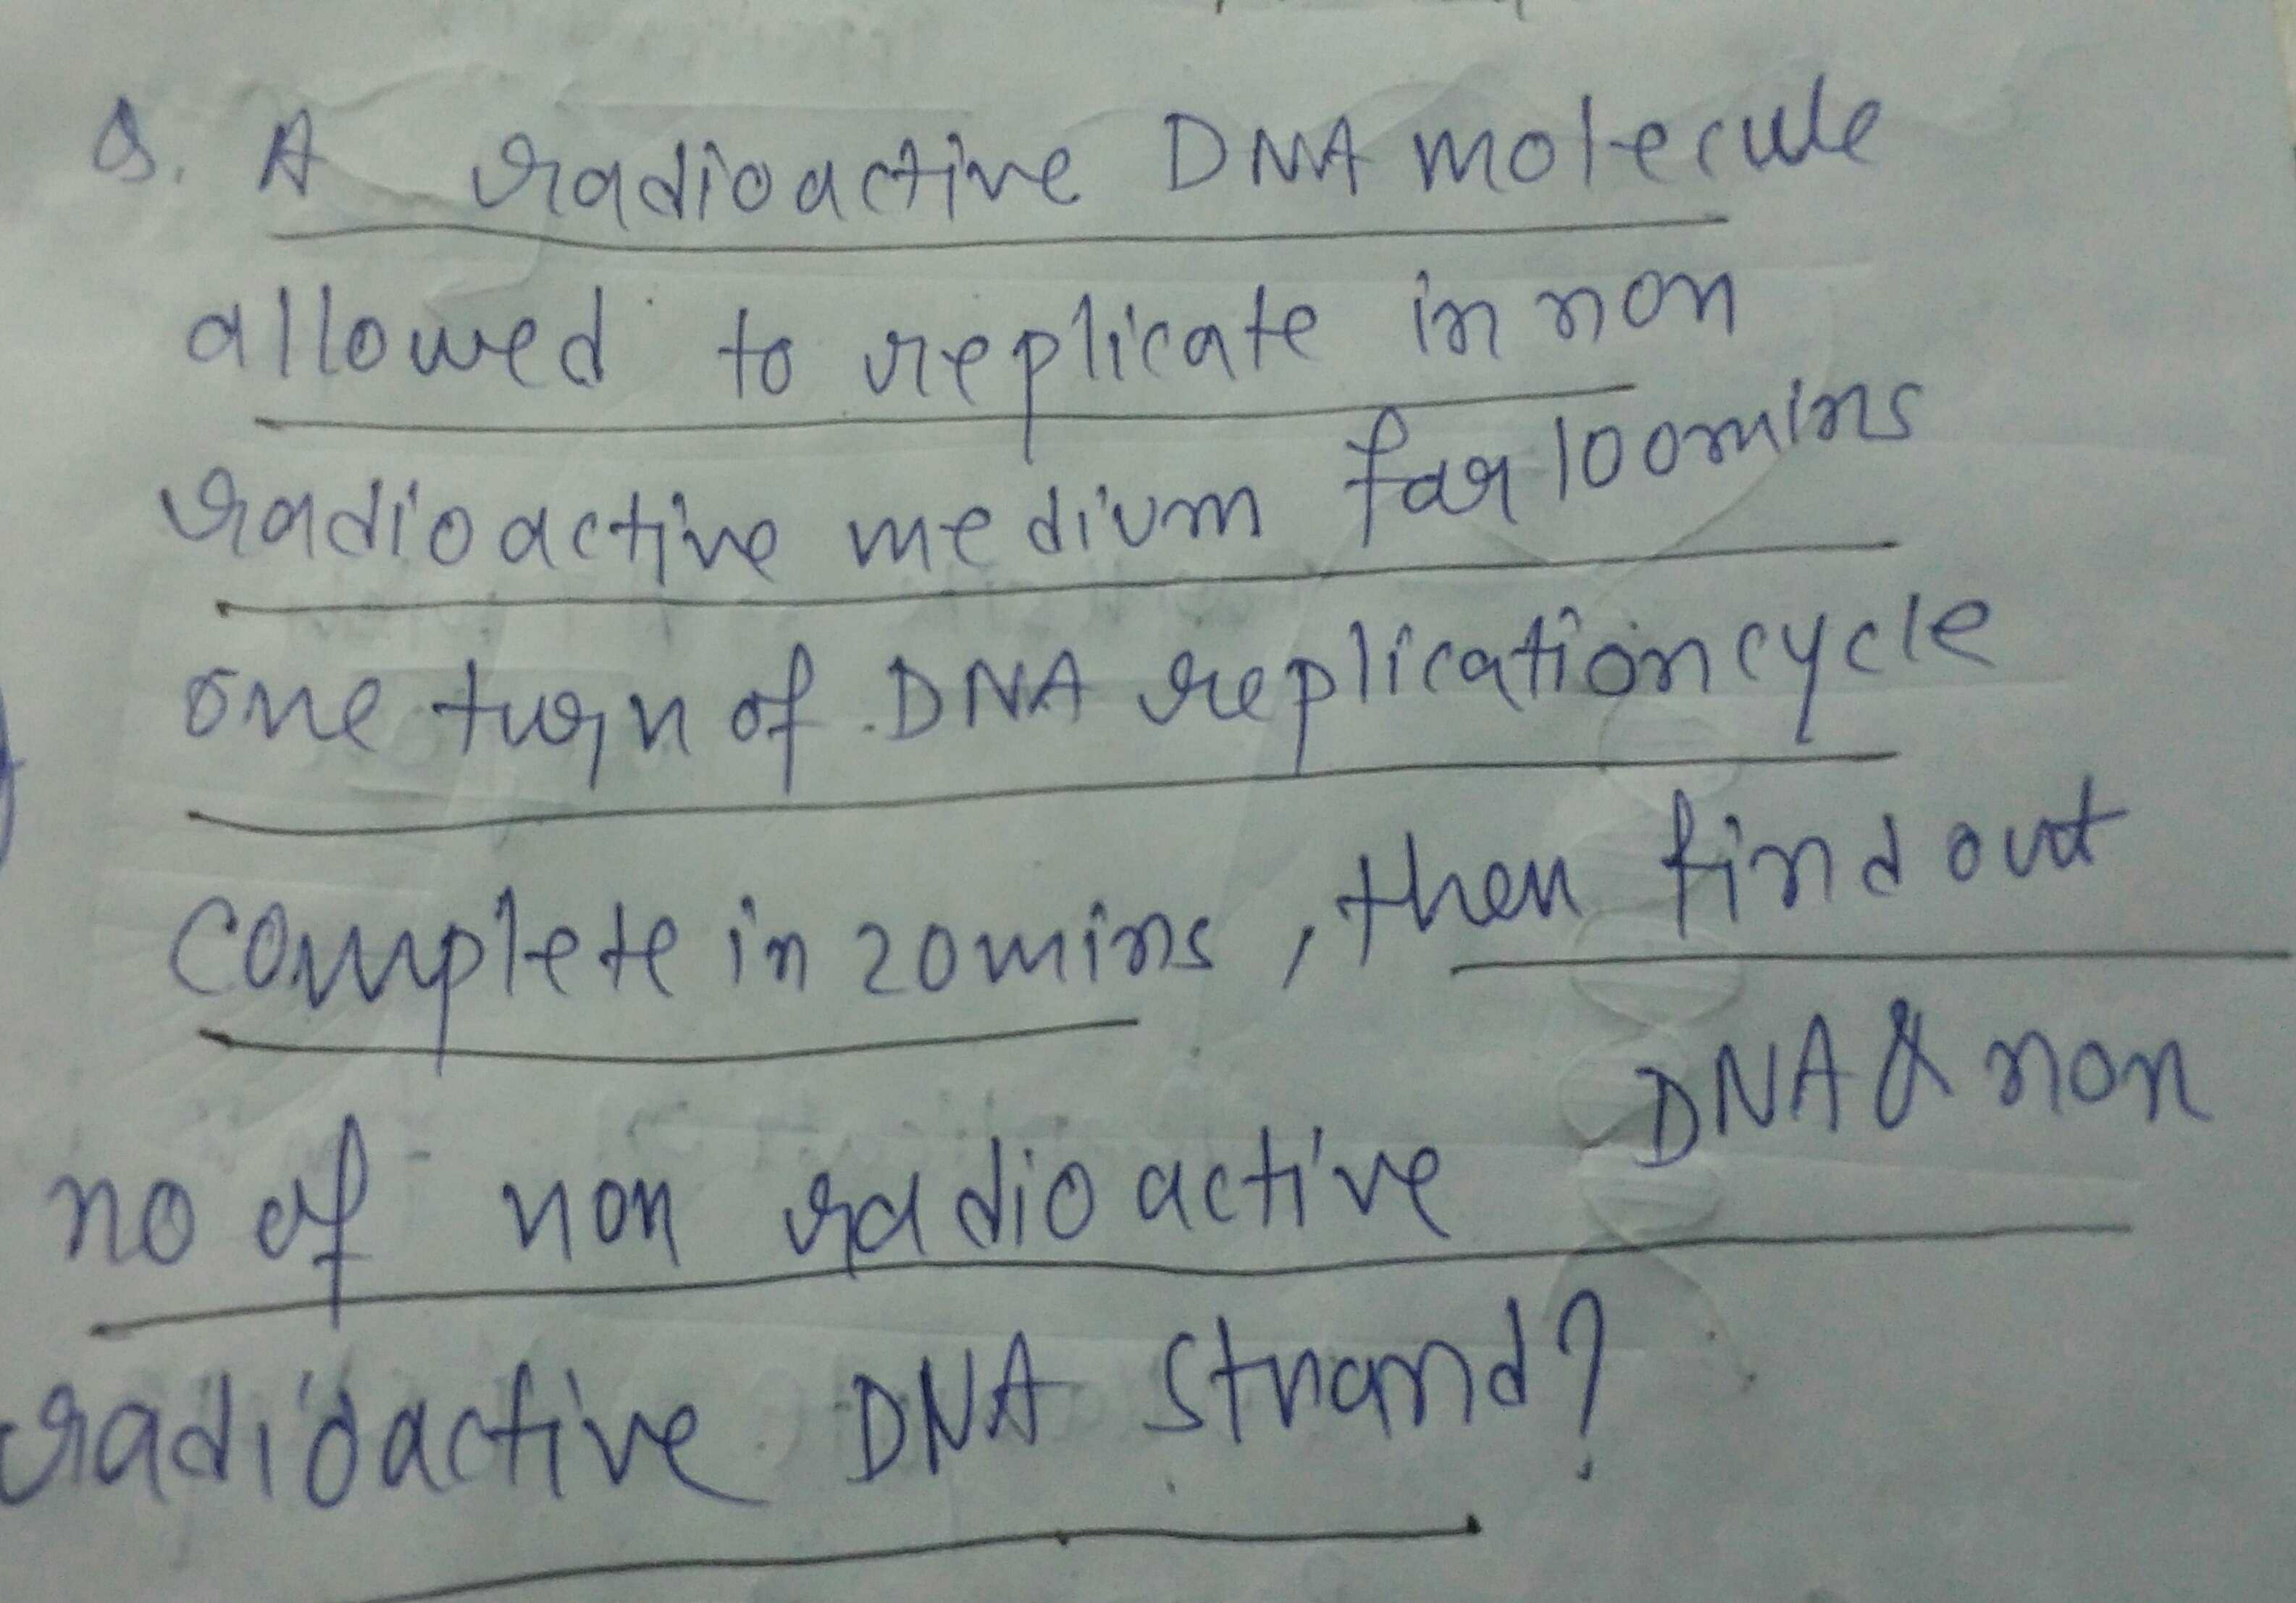 Q. A radioactive DNA molecule
allowed to replicate in non
radioactive medium for 100mins
one turn of DNA replication cycle
complete in 20mins, then find out
no of non radioactive DNA & non
radioactive DNA strand?